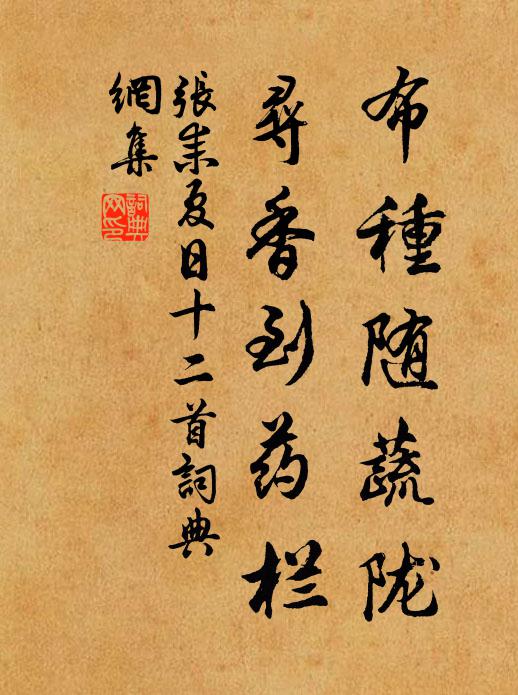 布種随蔬陇
尋香到药栏
張耒夏日十二首詞典
網集
詞典網印